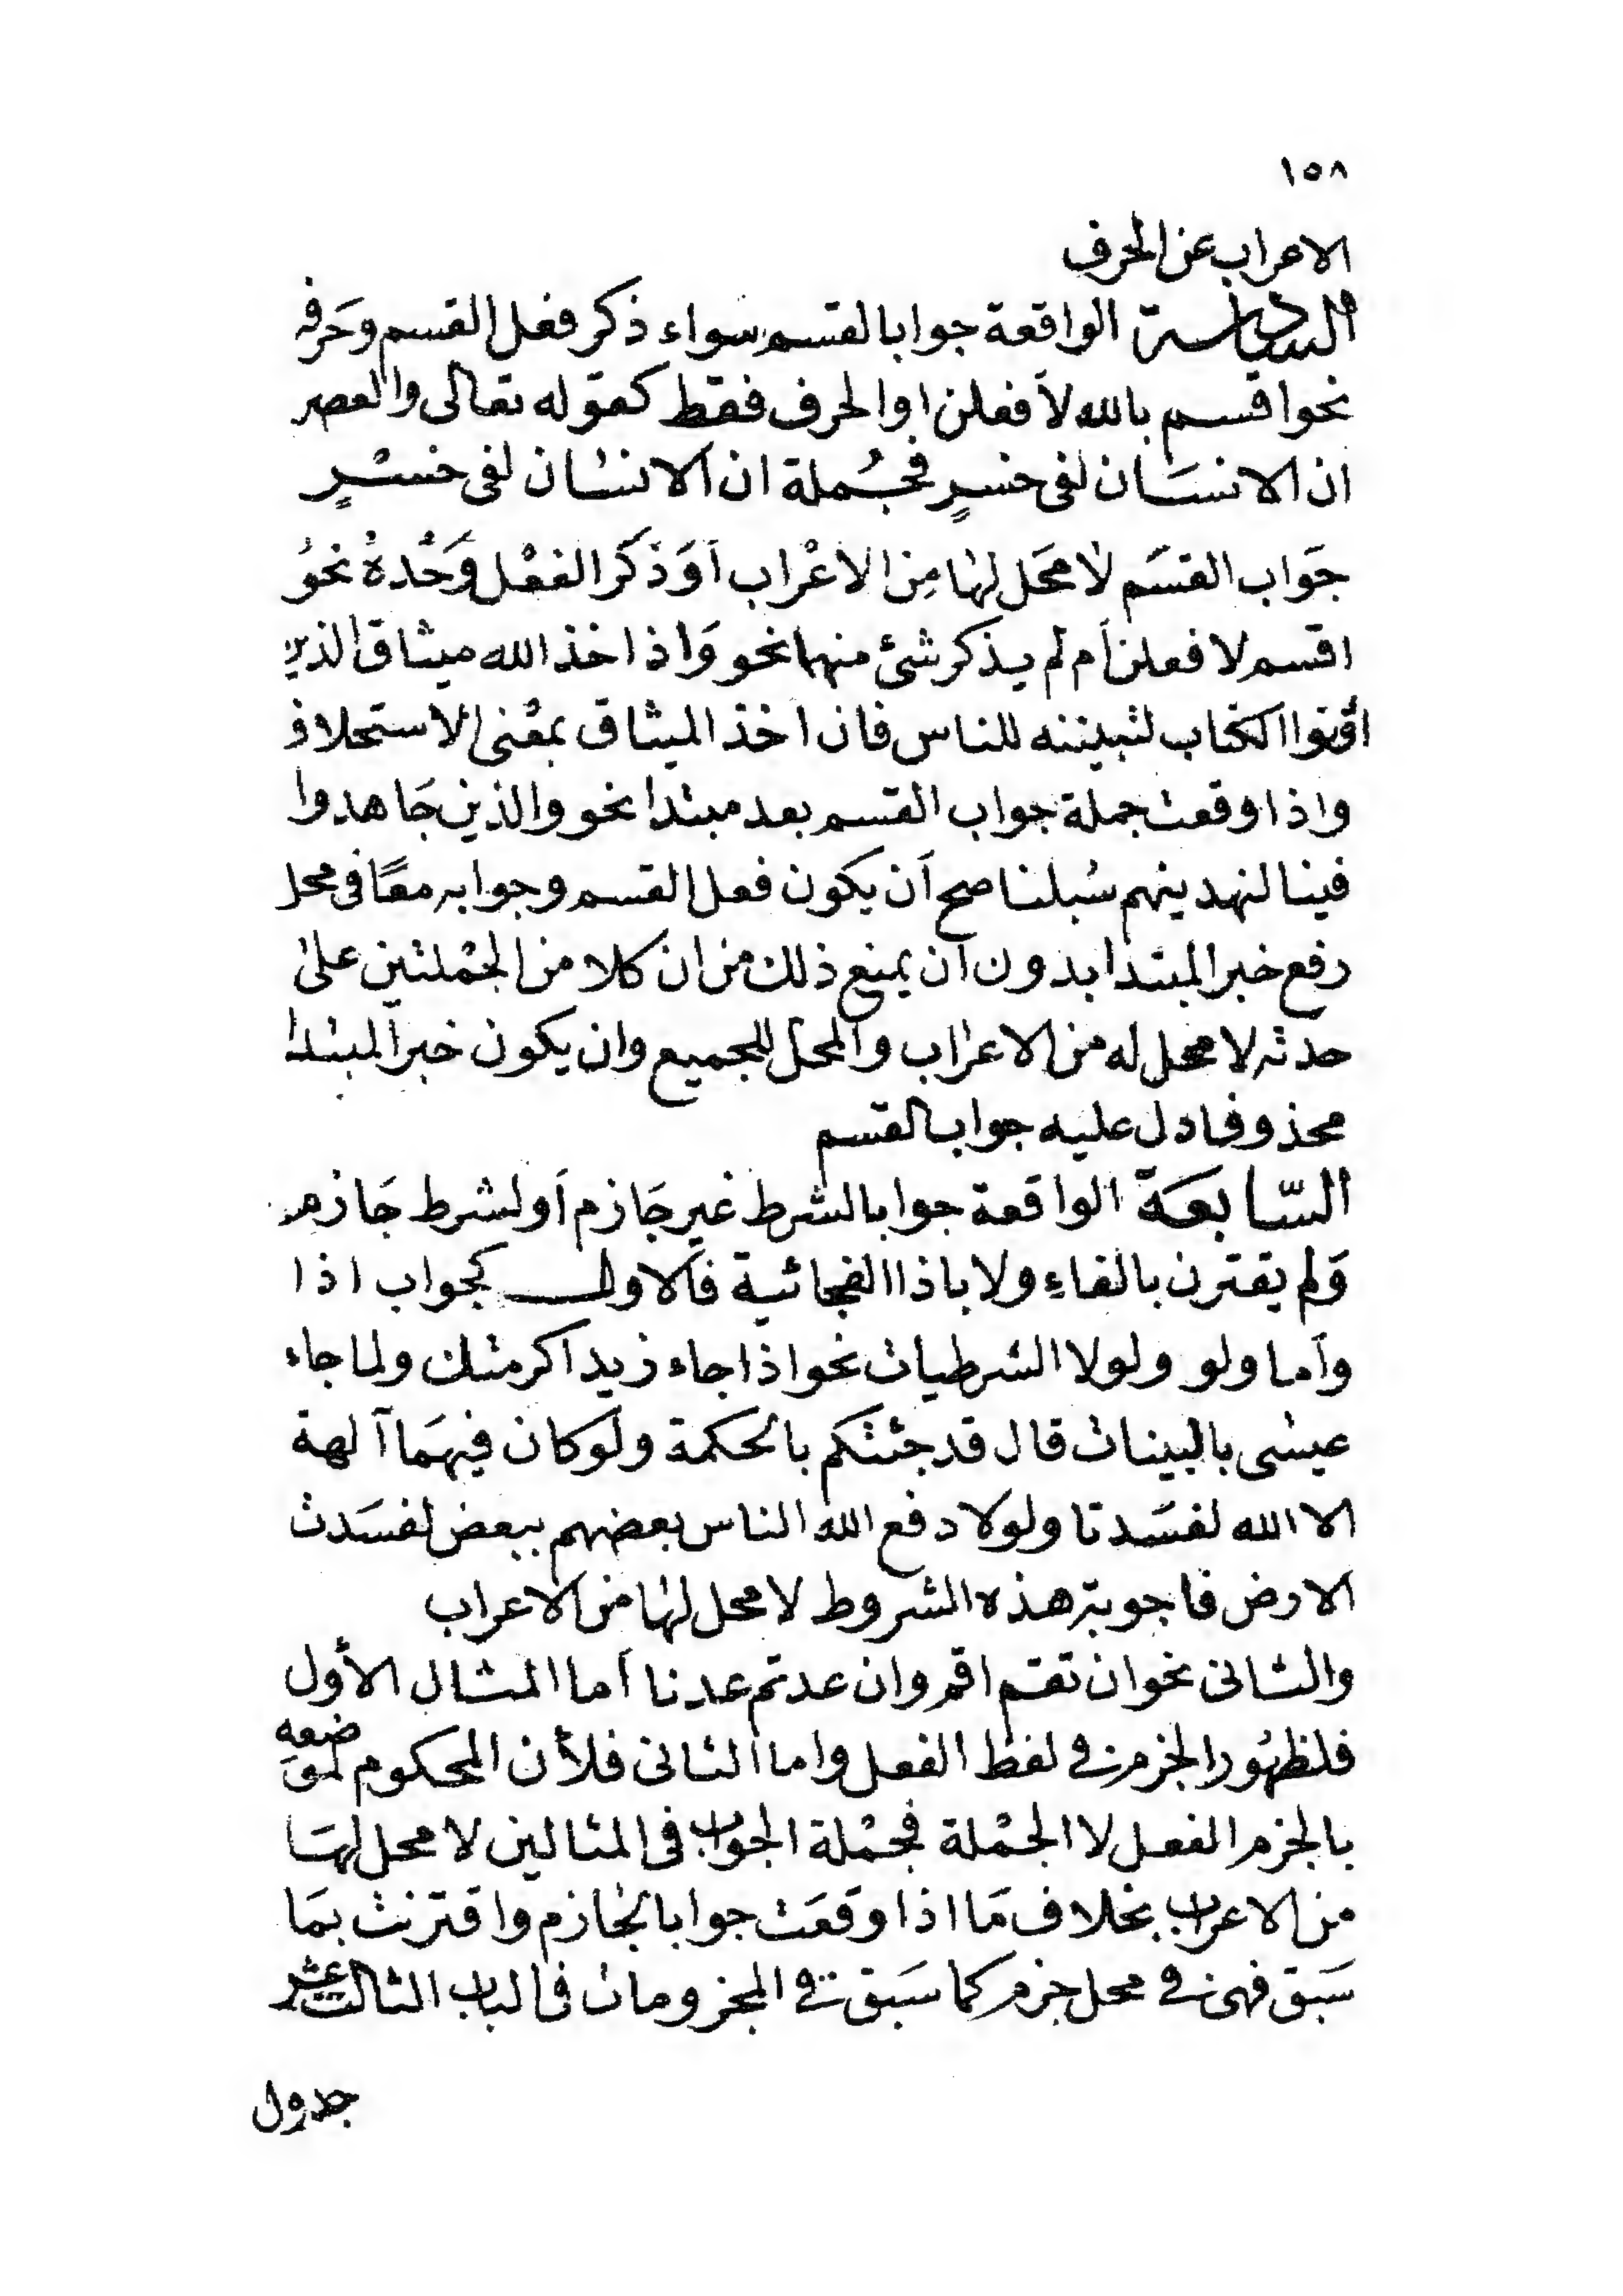 ١٥٨
الاعراب عن الحرف
السادسة الواقعة جوابا لقسم سواء ذكر فعل القسم وحَرفه
نحو اقسم بالله لاَفعلن او الحرف فقط كقوله تعالى والعصر
ان الانسَان لفى خسرٍ فجُملة ان الانسان لفى خسْرٍ
جَواب القسَم لا محَل لها مِن الاعْراب اَوَذكَر الفعْل وَحْدهُ نحوُ
اقسم لا فعلن اَم لم يذكر شئ منهما نحو وَاذ اخذ الله ميثاق الذين
اوتوا الكتاب لتبيننه للناس فان اخذ الميثاق بمعْنى الاستحلاف
واذا وقعت جملة جواب القسم بعد مبتدا نحو والذين جَاهدوا
فينا لنهدينهم سُبلنا صح اَن يكون فعل القسم وجوابه معًا فى محل
رفع خبر المبتدا بدون ان يمنع ذلك من ان كلا من الجمْلتين على
حدته لا محل له من الاعراب والمحل للجميع وان يكون خبر المبتدا
محذوفا دل عليه جواب القسم
السّابعَة الواقعة جوابا لشرط غير جَازم اَو لشرط جَازم
وَلم يقترن بالفاءِ ولا باذا الفجائية فالاول كجواب اذا
واَما ولو ولولا الشرطيات نحو اذا جاء زيد اكرمتك ولما جاء
عيسى بالبينات قال قد جئتكم بالحكمة ولوكان فيهمَا آلهة
الا الله لفسَدتا ولولا دفع الله الناس بعضهم ببعض لفسَدت
الارض فاجوبة هذه الشروط لا محل لها من الاعراب
والثانى نحو ان تقم اقم وان عدتم عدنا اَما المثال الأول
فلظهُور الجزم فى لفظ الفعل واما الثانى فلأن المحكوم لموَضعه
بالجزم الفعل لا الجمْلة فجمْلة الجواب فى المثالين لا محل لهَا
من الاعراب بخلاف مَا اذا وقعَت جوابا لجازم واقترنت بمَا
سَبق فهى فى محل جزم كما سَبق فى المجزومات فى الباب الثالث عشر
جدول